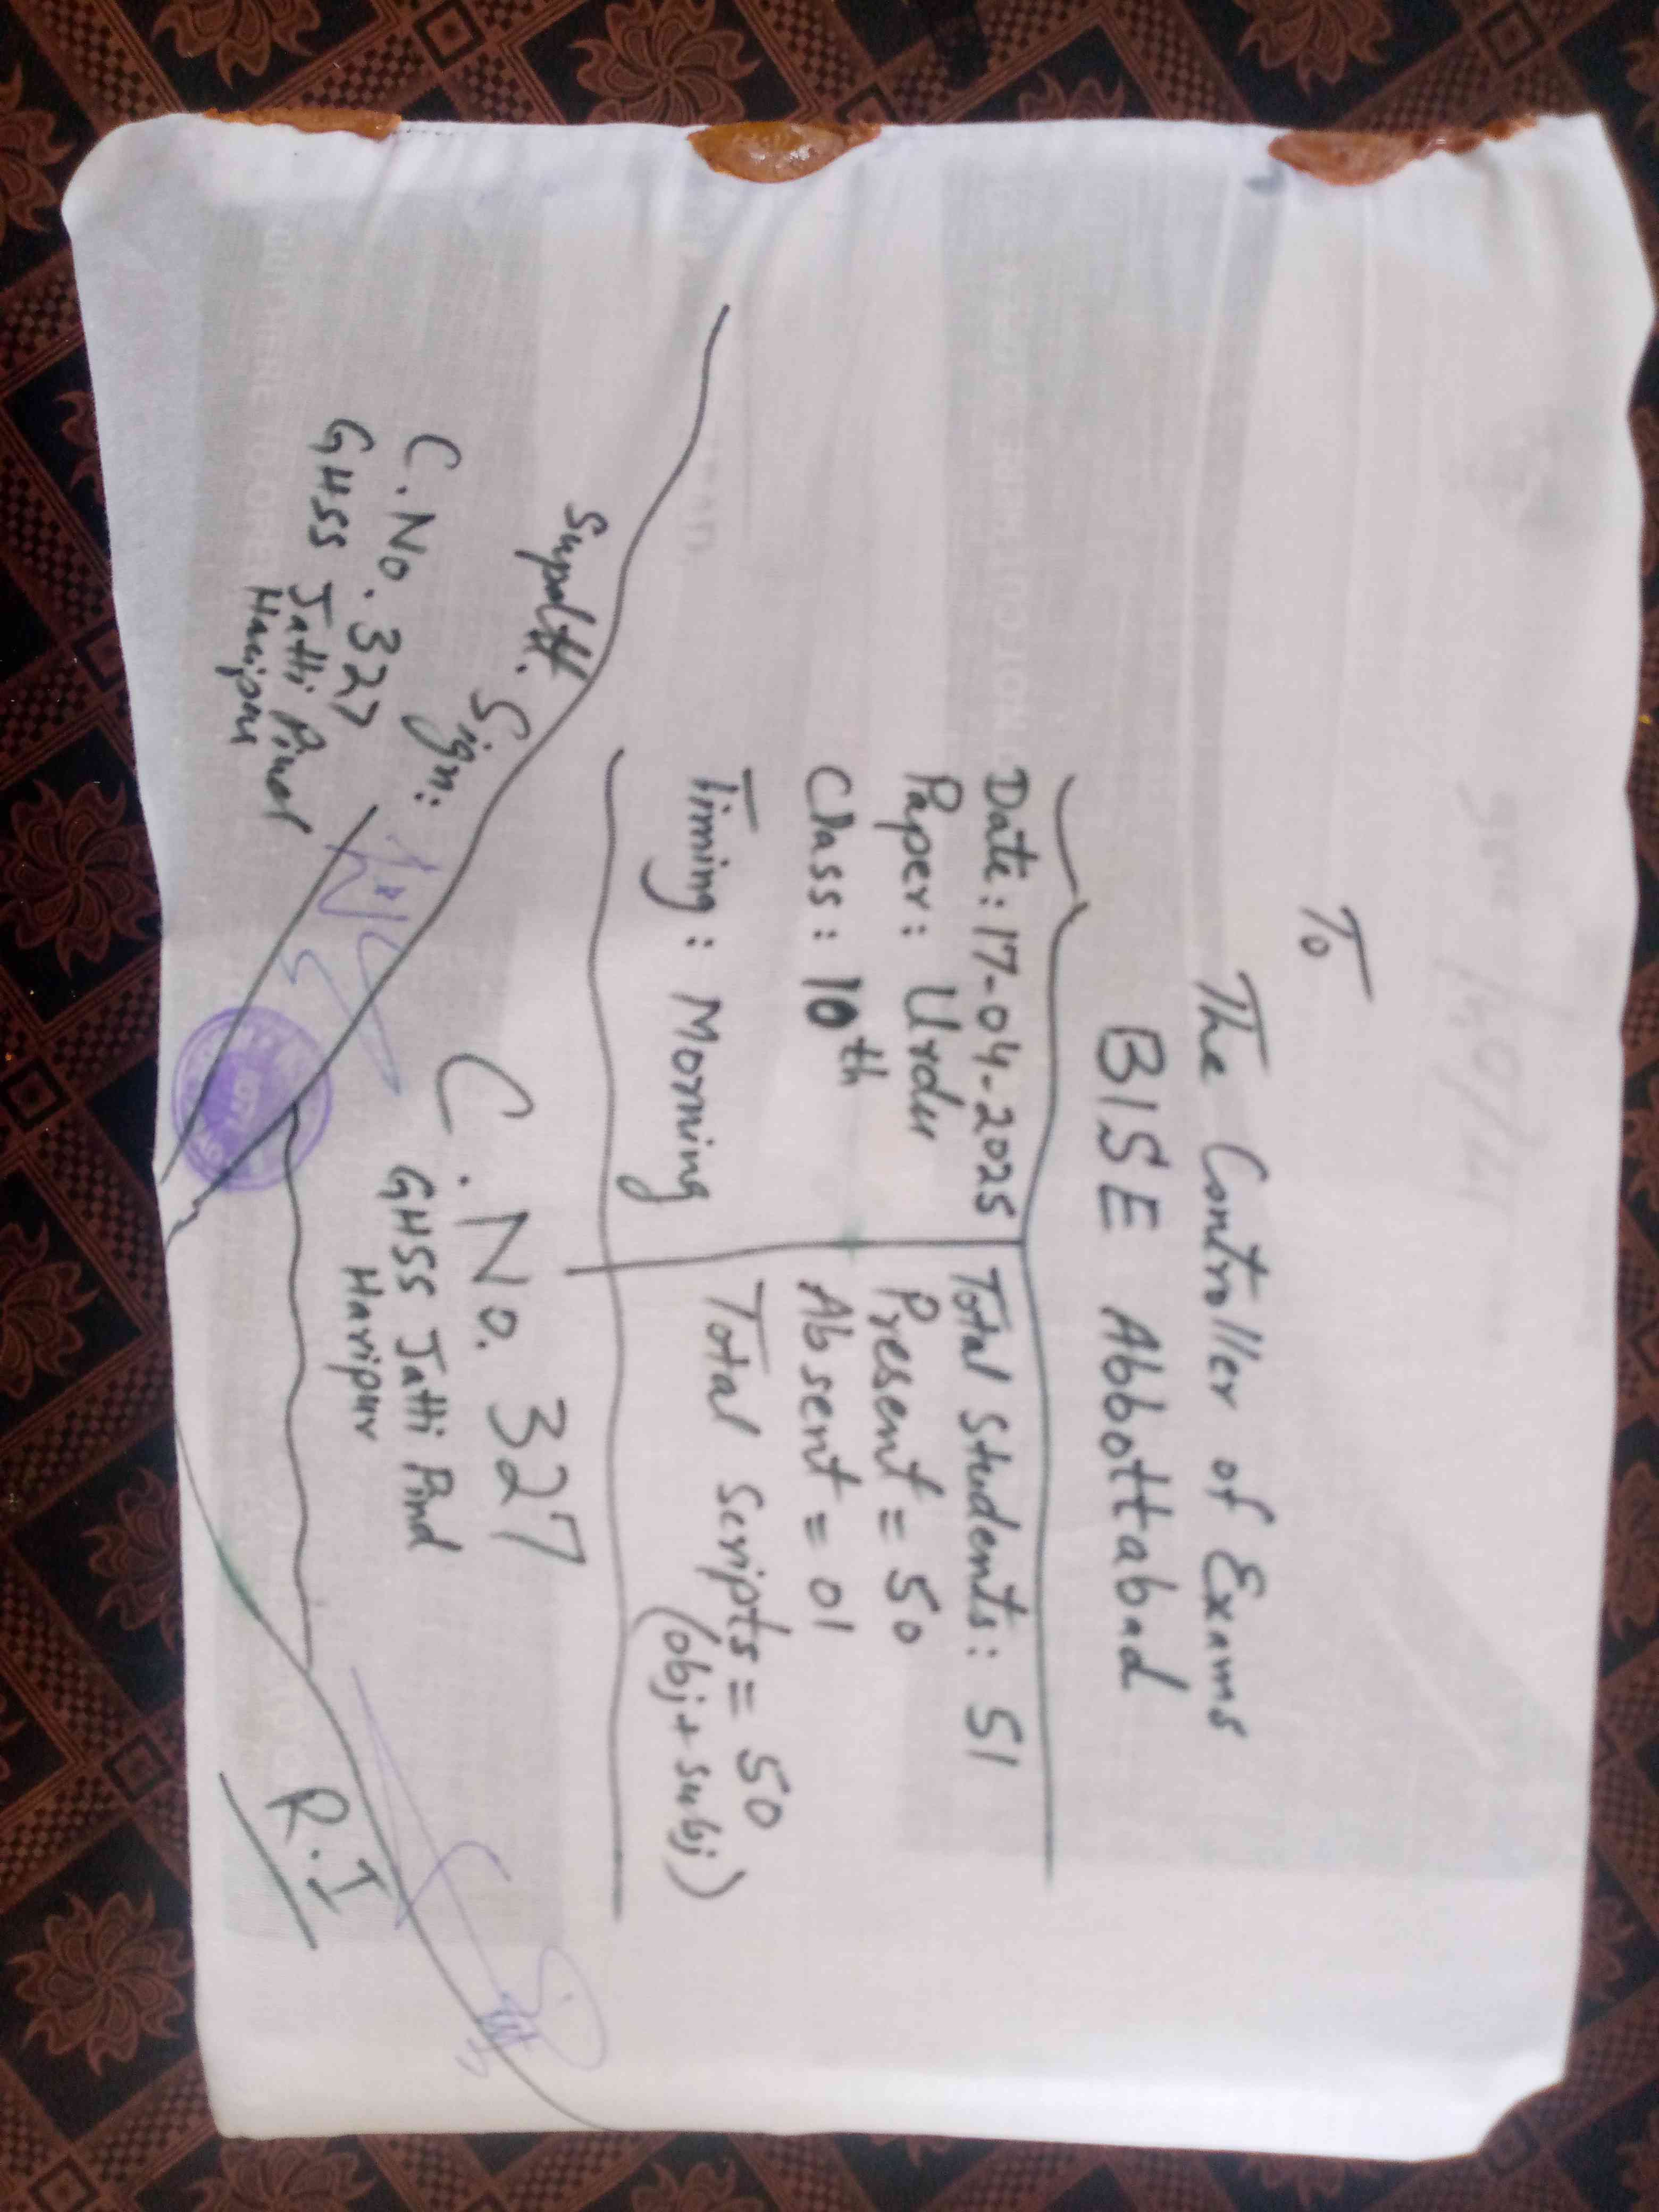 To
The Controller of Exams
BISE Abbottabad
Date: 17-04-2025
Paper: Urdu
Class: 10th
Timing: Morning
Total Students: 51
Present = 50
Absent = 01
Total Scripts = 50
(obj + subj)
C. No. 327
GHSS Jatti Pind
Haripur
Supdtt. Sign:
C. No. 327
GHSS Jatti Pind
Haripur
R.I